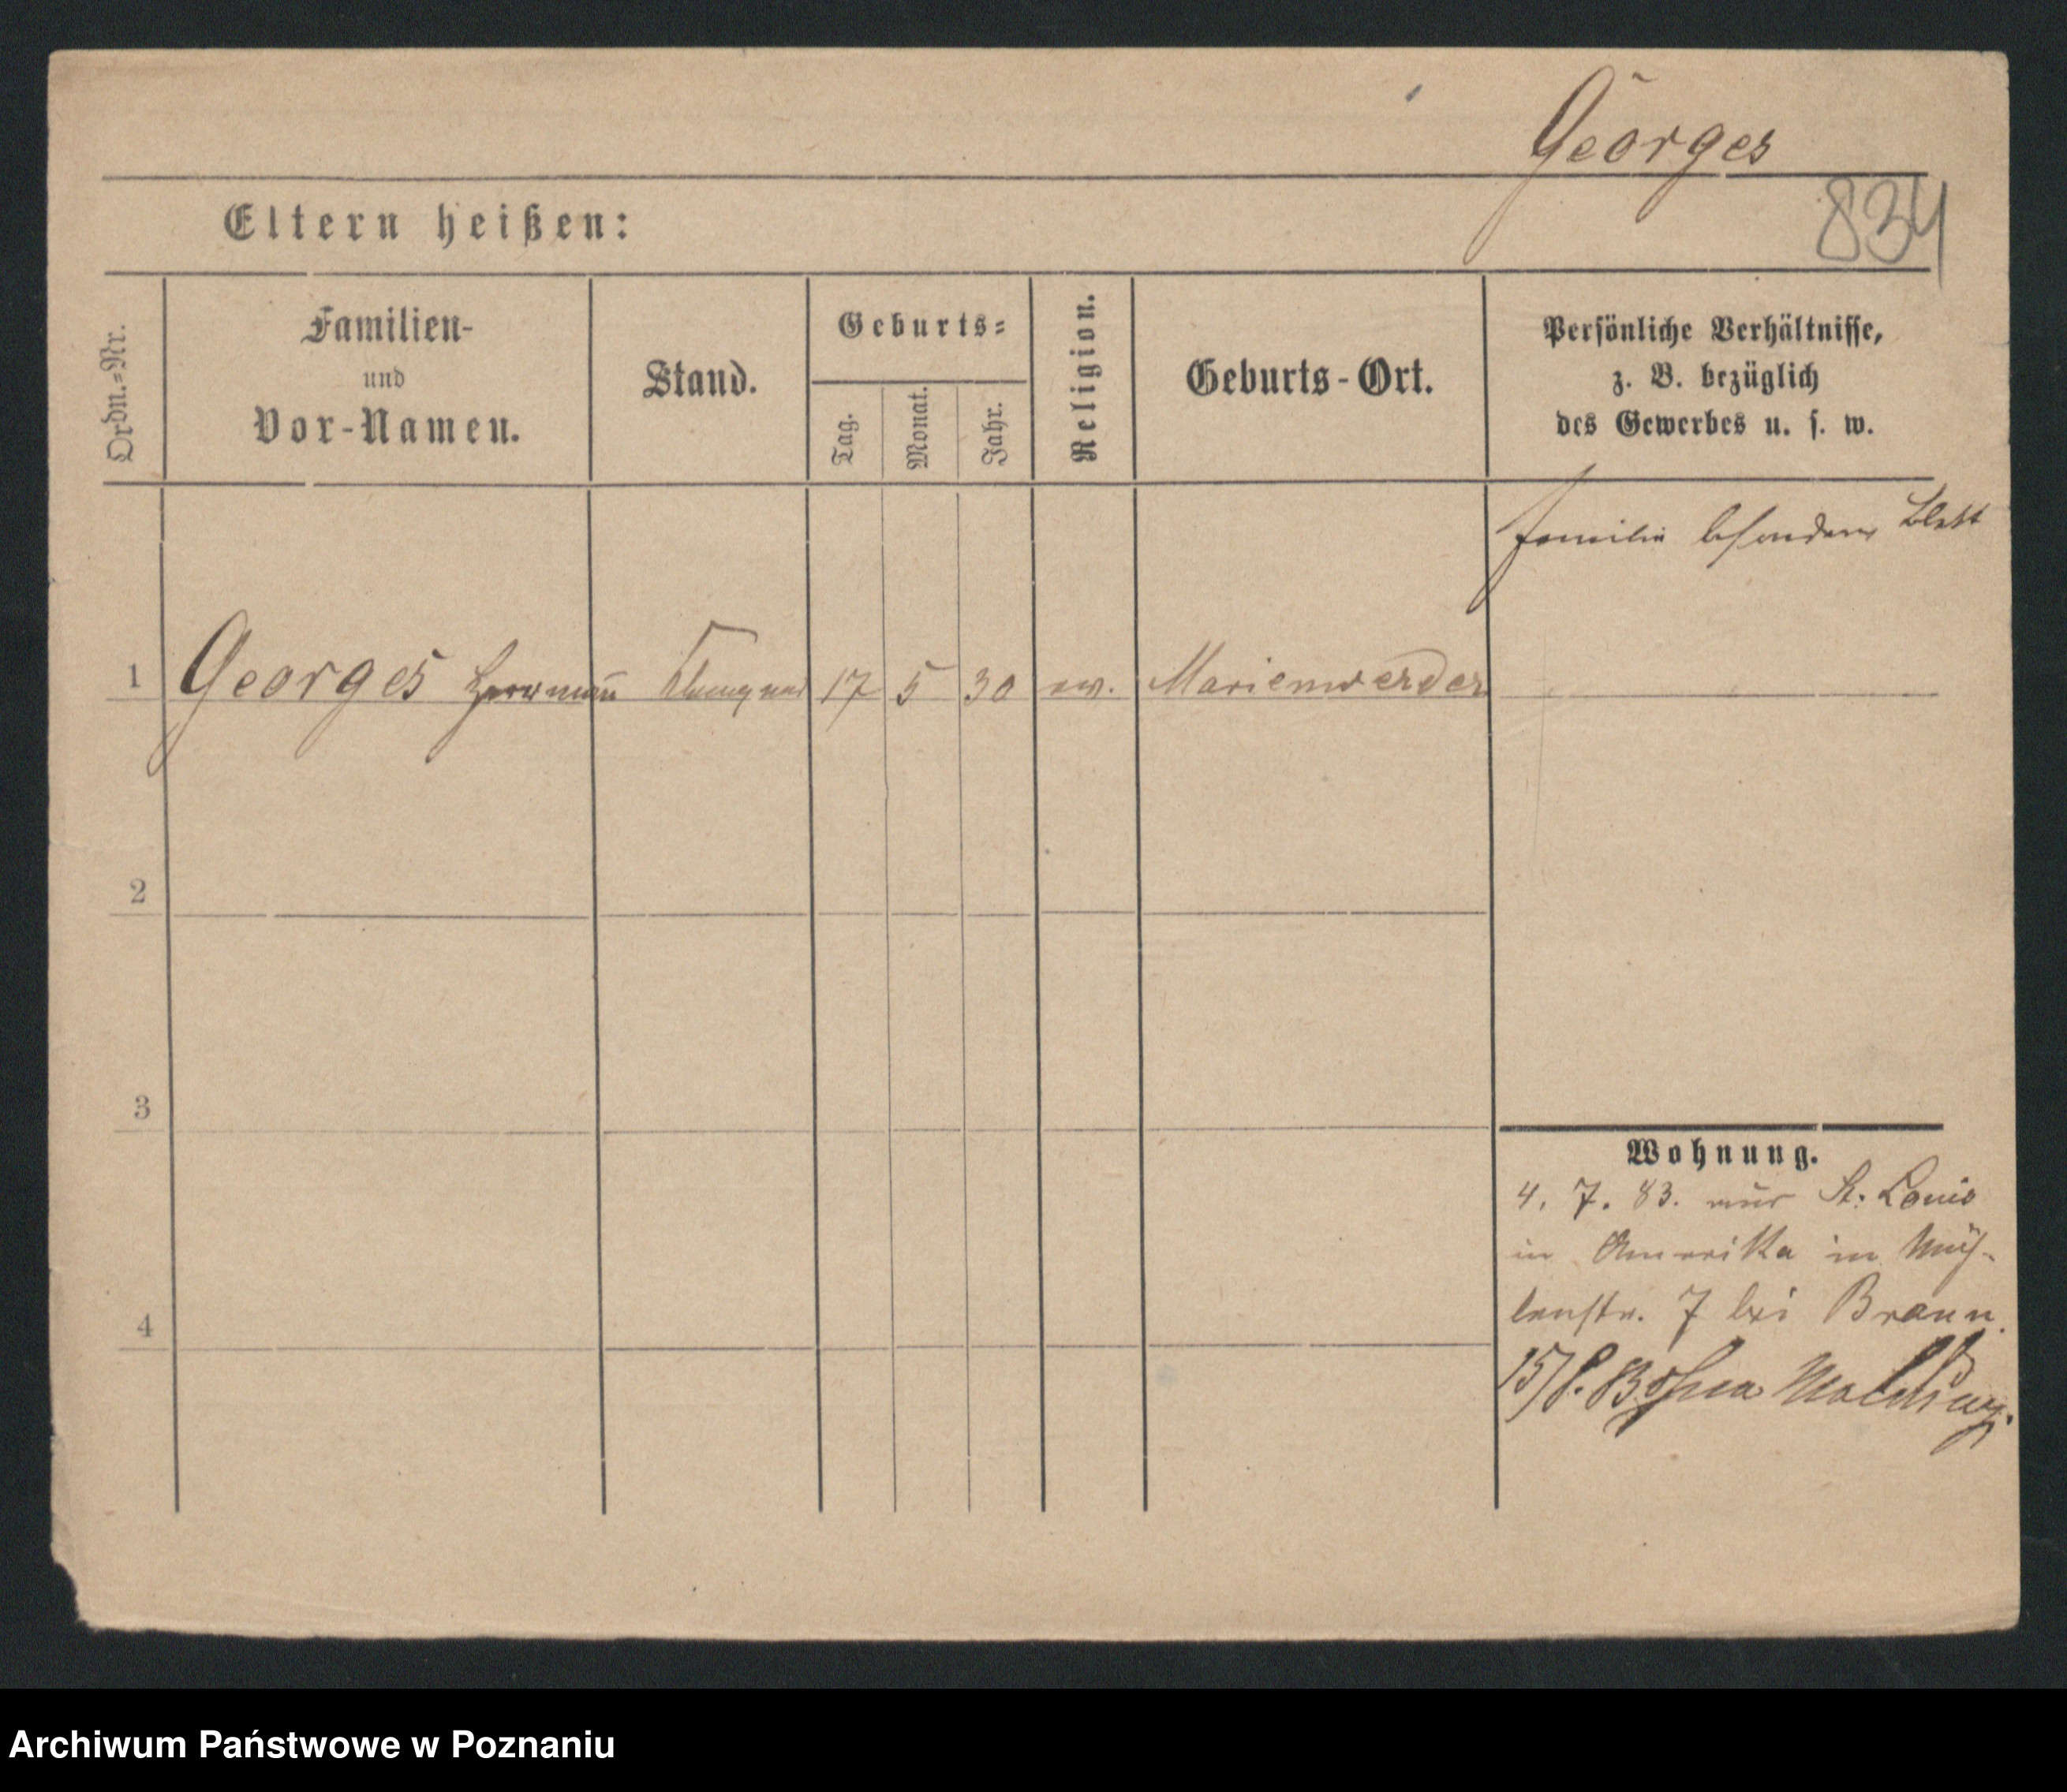 Georges
834
Eltern heißen:
Ordn.=Nr.
Familien-
und
Vor-Namen.
Stand.
Geburts=
Tag.
Monat.
Jahr.
Religion.
Geburts-Ort.
Persönliche Verhältnisse,
z. B. bezüglich
des Gewerbes u. s. w.
Familie besonderes Blatt
1 Georges Herrmañ 17 5 30 ev. Marienwerder
2
3
4
Wohnung.
4. 7. 83. aus St. Louis
in Amerika in Müh-
lenstr. 7 bei Braun.
15/8.
Archiwum Państwowe w Poznaniu